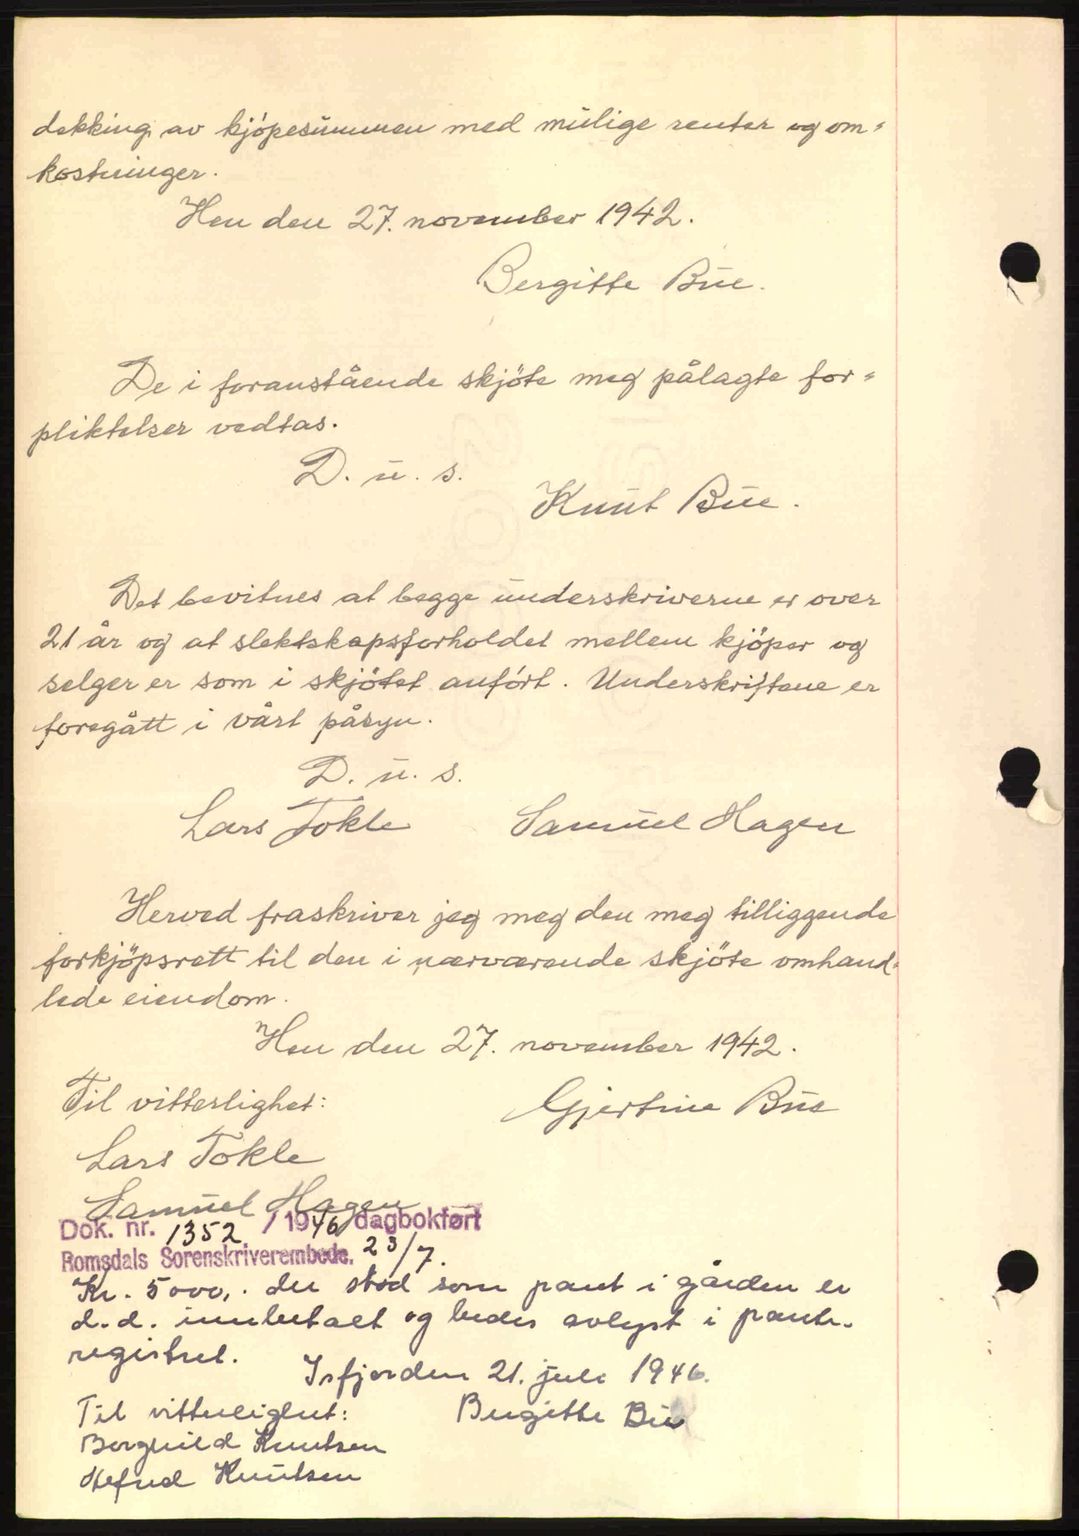 dekking av kjöpesummen med mulige renter og om-
kostninger.
Hen den 27. november 1942.
Bergitte Bue.
De i foranstående skjöte meg pålagte for-
pliktelser vedtas.
D. u. s.
Knut Bue.
Det bevitnes at begge underskriverne er over
21 år og at slektskapsforholdet mellem kjöper og
selger er som i skjötet anfört. Underskriftene er
foregått i vårt påsyn.
D. u. s.
Lars Tokle Samuel Hagen
Herved fraskriver jeg meg den meg tilliggende
forkjöpsrett til den i nærværende skjöte omhand-
lede eiendom.
Hen den 27. november 1942.
Til vitterlighet: Gjertine Bue
Lars Tokle
Samuel Hagen
Dok. nr. 1352 / 1946 dagbokført
Romsdals Sorenskriverembede. 23/7.
Kr. 5000,- der stod som pant i gården er
d.d. innbetalt og bedes avlyst i pante-
registret.
Isfjorden 21. juli 1946.
Til vitterlighet: Bergitte Bue
Borghild Knutsen
Knutsen